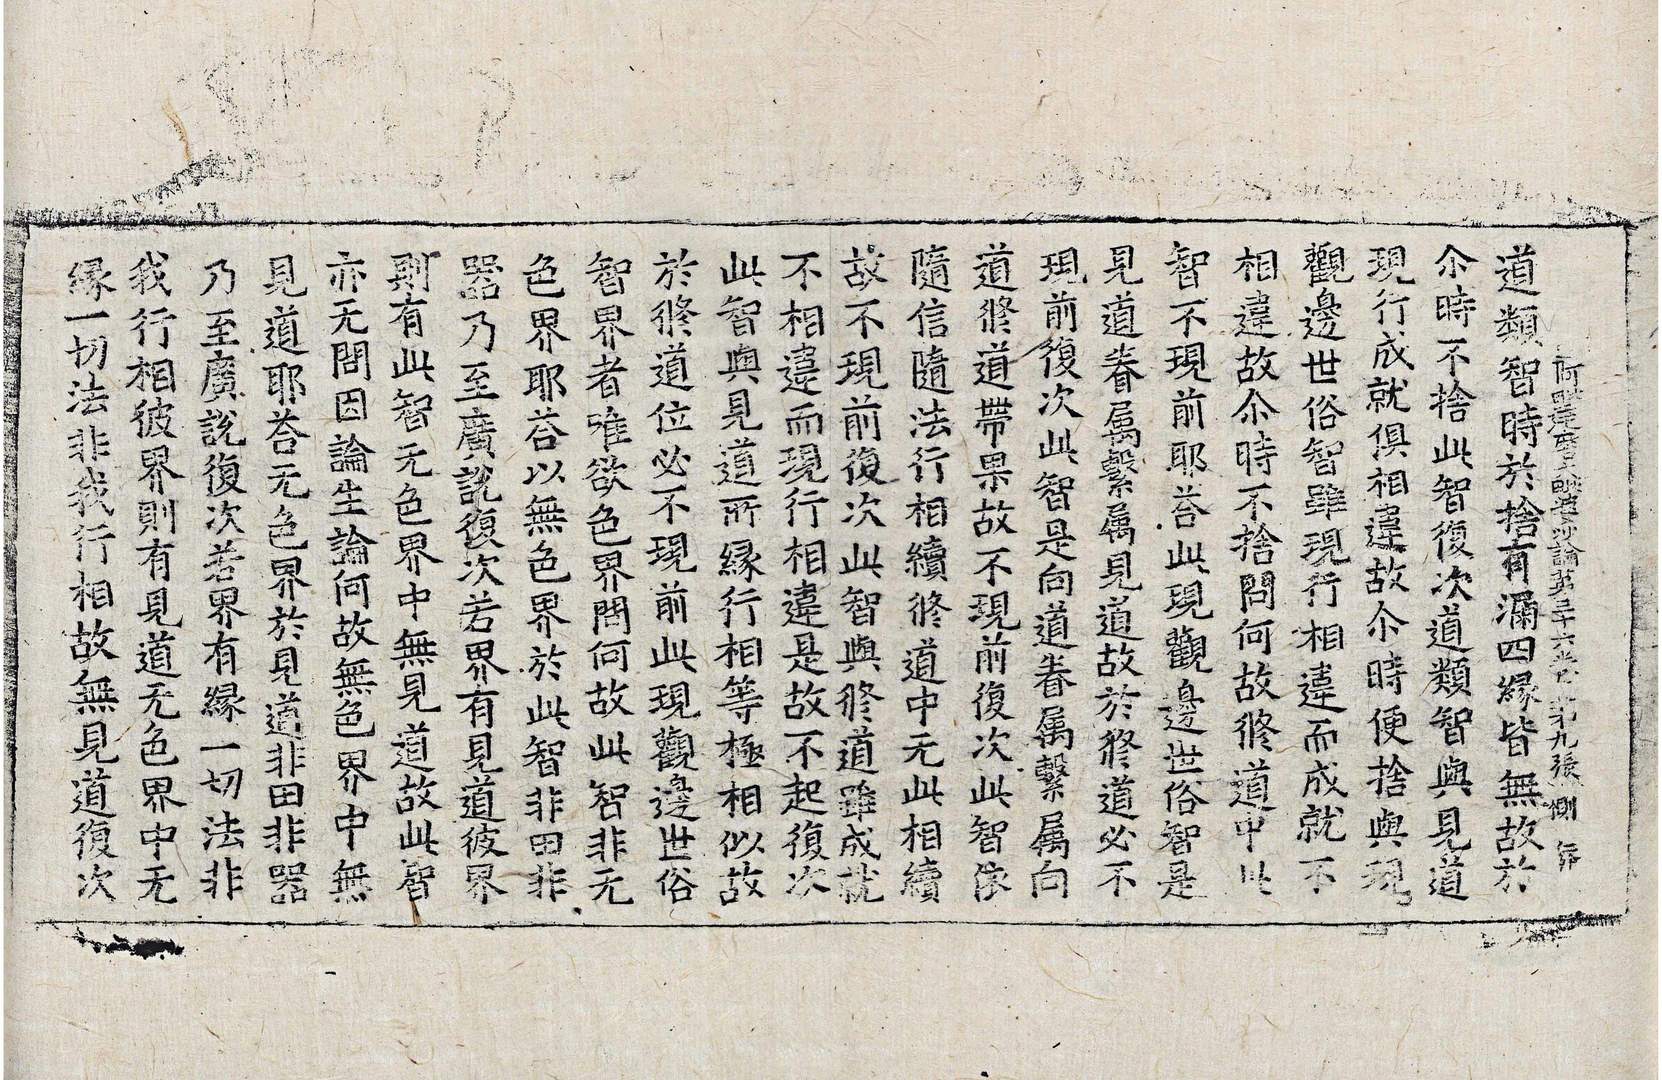 阿毗達磨大毗婆沙論第三十六卷 第九張 惻
道類智時於捨有漏四緣皆無故於
尒時不捨此智復次道類智與見道
現行成就俱相違故尒時便捨與現
觀邊世俗智雖現行相違而成就不
相違故尒時不捨問何故修道中此
智不現前耶荅此現觀邊世俗智是
見道眷属繫属見道故於修道必不
現前復次此智是向道眷属繫属向
道修道帶果故不現前復次此智依
隨信隨法行相續修道中无此相續
故不現前復次此智與修道雖成就
不相違而現行相違是故不起復次
此智與見道所緣行相等極相似故
於修道位必不現前此現觀邊世俗
智界者唯欲色界問何故此智非无
色界耶荅以無色界於此智非田非
器乃至廣說復次若界有見道彼界
則有此智无色界中無見道故此智
亦无問因論生論何故無色界中無
見道耶荅无色界於見道非田非器
乃至廣說復次若界有緣一切法非
我行相彼界則有見道无色界中无
緣一切法非我行相故無見道復次